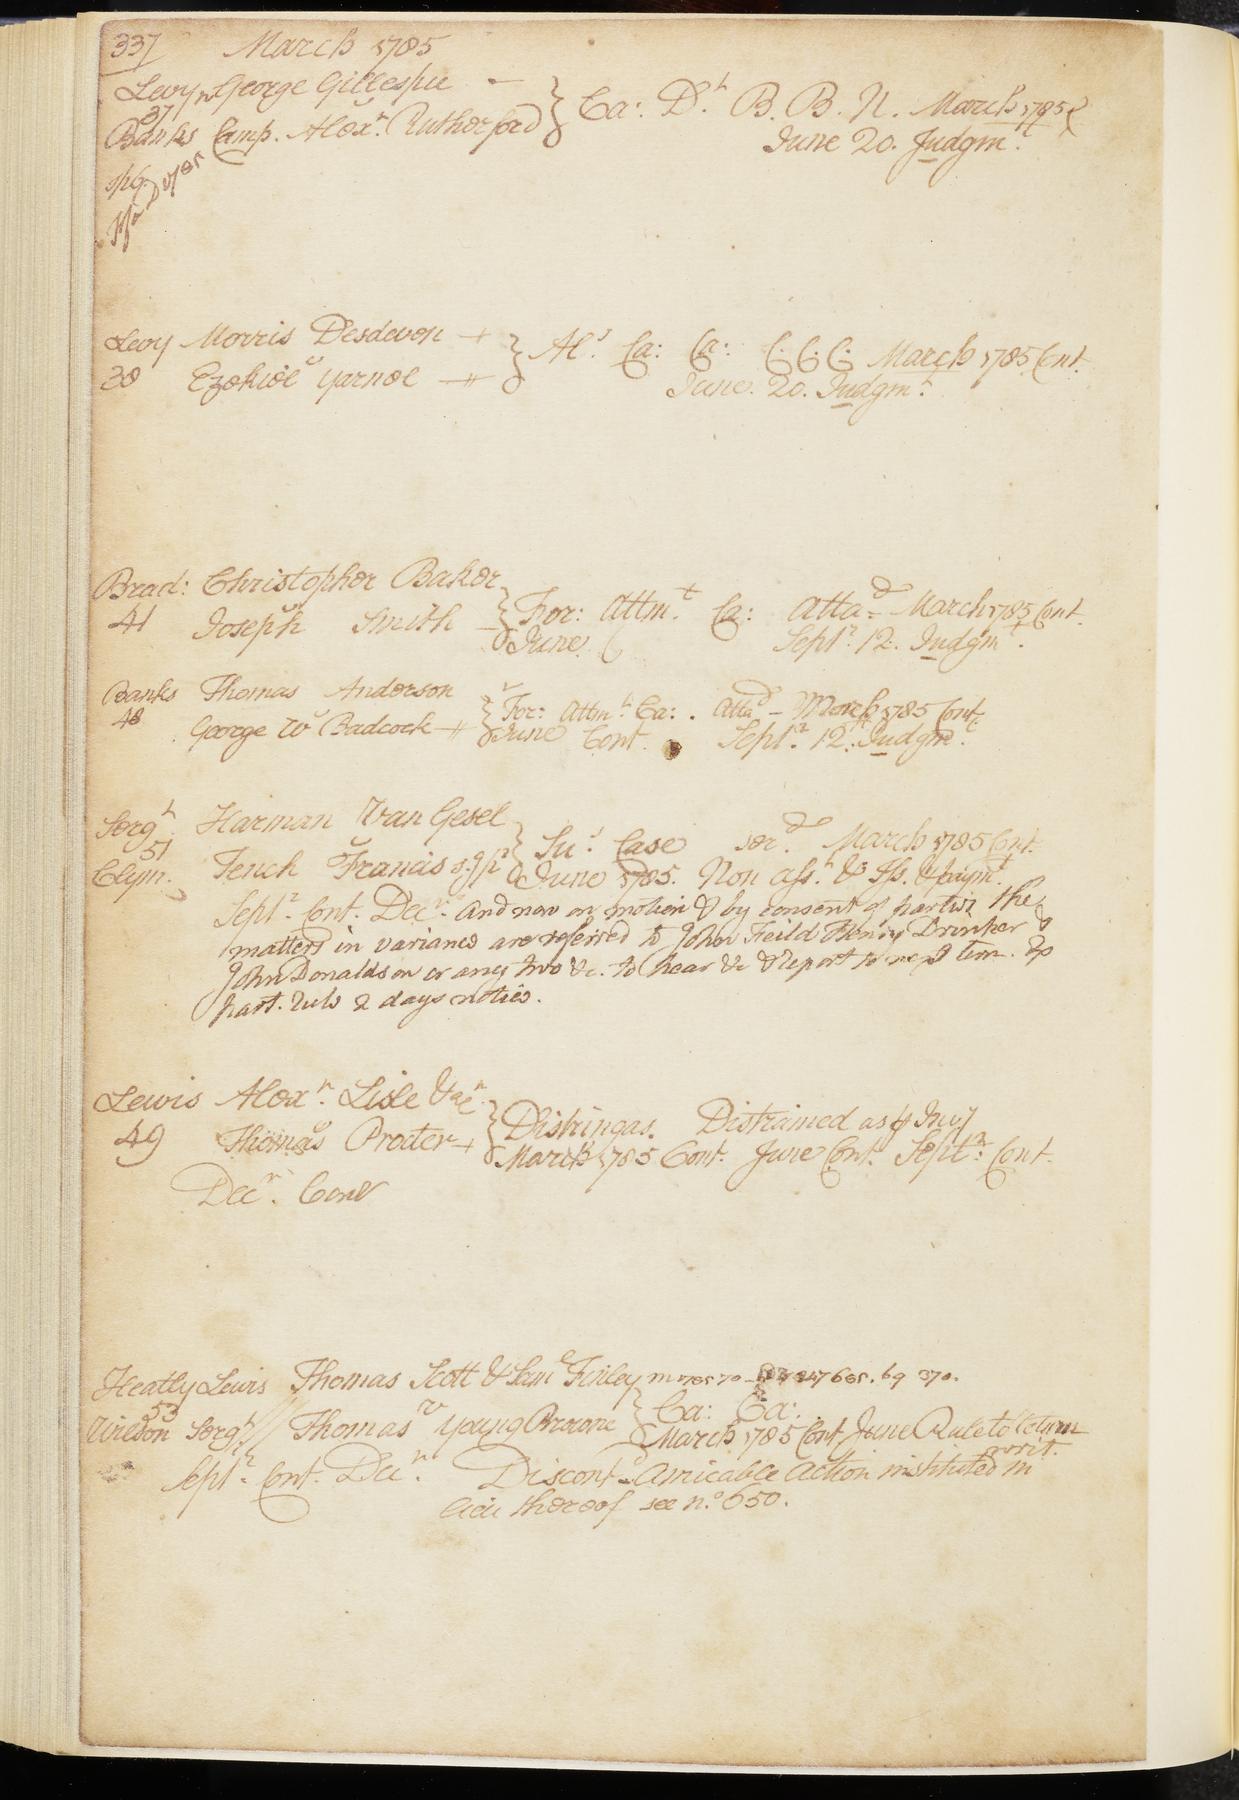 337 March 1785
Levy George Gillespie
37 v
Banks Camp. Alexr. Rutherford } Ca: Dt. B. B. N. March 1785
June 20. Judgmt.
Levy Morris Desdevon
38 v Ezekiel Yarnel } Als. Ca: Ca: C. C. C. March 1785 Cont.
June. 20. Judgmt.
Brad: Christopher Baker
41 v Joseph Smith } For: Attmt. Ca: Attad. March 1785 Cont.
June Septr. 12. Judgmt.
Banks Thomas Anderson
48 v George W Badcock } For: Attmt. Ca: Attad. March 1785 Cont.
June Cont. Septr. 12. Judgmt.
Sergt. Harman Van Gesel
51 v
Clym. Tench Francis } Su: Case serd. March 1785 Cont.
June 1785. Non ass. & Iss. & paymt.
Septr. Cont. Decr. And now on motion & by consent of parties the
matters in variance are referred to John Feild Henry Drinker &
John Donaldson or any two &c. to hear &c & Report to next term. Ex
part. Rule 2 days notice.
Lewis Alexr. Lisle
49 v Thomas Procter } Distringas. Distrained as Invy
March 1785 Cont. June Cont. Septr. Cont.
Decr. Cont
Heatly Lewis Thomas Scott & Saml Finley
53 v
Wilson Sergt. Thomas Young Browne } Ca: Ca:
March 1785 Cont June Rule to return writ.
Septr. Cont. Decr. Discontd. Amicable Action instituted in
lieu thereof see no. 650.